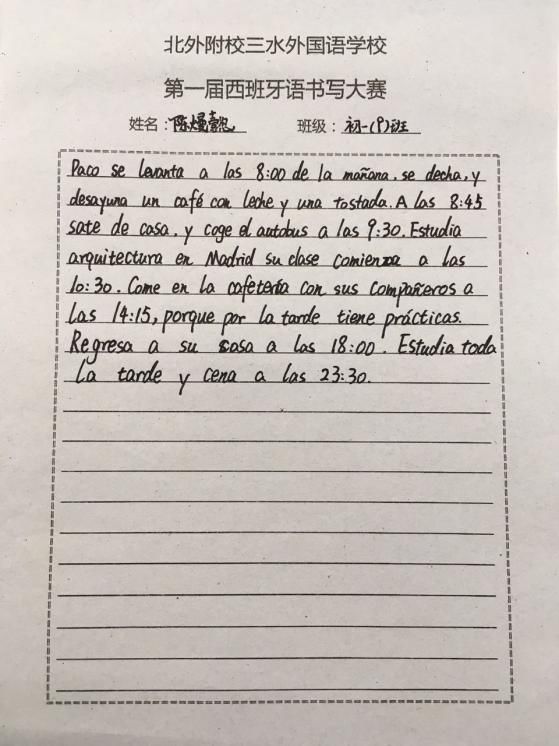 北外附校三水外国语学校
第一届西班牙语书写大赛
姓名：陈熳 班级：初一(9)班
Paco se levanta a las 8:00 de la mañana, se decha, y
desayuna un café con leche y una tostada. A las 8:45
sate de casa, y coge el autobus a las 9:30. Estudia
arquitectura en Madrid su clase comienza a las
10:30. Come en la cafetería con sus compañeros a
las 14:15, porque por la tarde tiene prácticas.
Regresa a su casa a las 18:00. Estudia toda
la tarde y cena a las 23:30.